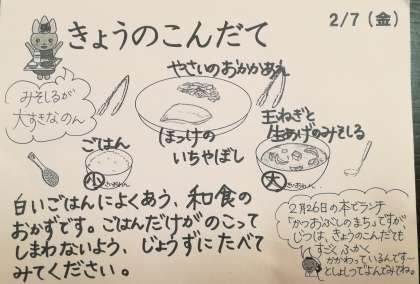 きょうのこんだて
2/7 (金)
みそしるが
大すきなのん
やさいのおかかあえ
ほっけの
いちやぼし
ごはん
小
玉ねぎと
生あげのみそしる
大
白いごはんによくあう、和食の
おかずです。ごはんだけがのこって
しまわないよう、じょうずにたべて
みてください。
2月26日の本でランチ
「かつおぶしのまち」ですが
じつは、きょうのこんだても
すごくふかく
かかわっているんです〜
としょしつでよんでみてね。